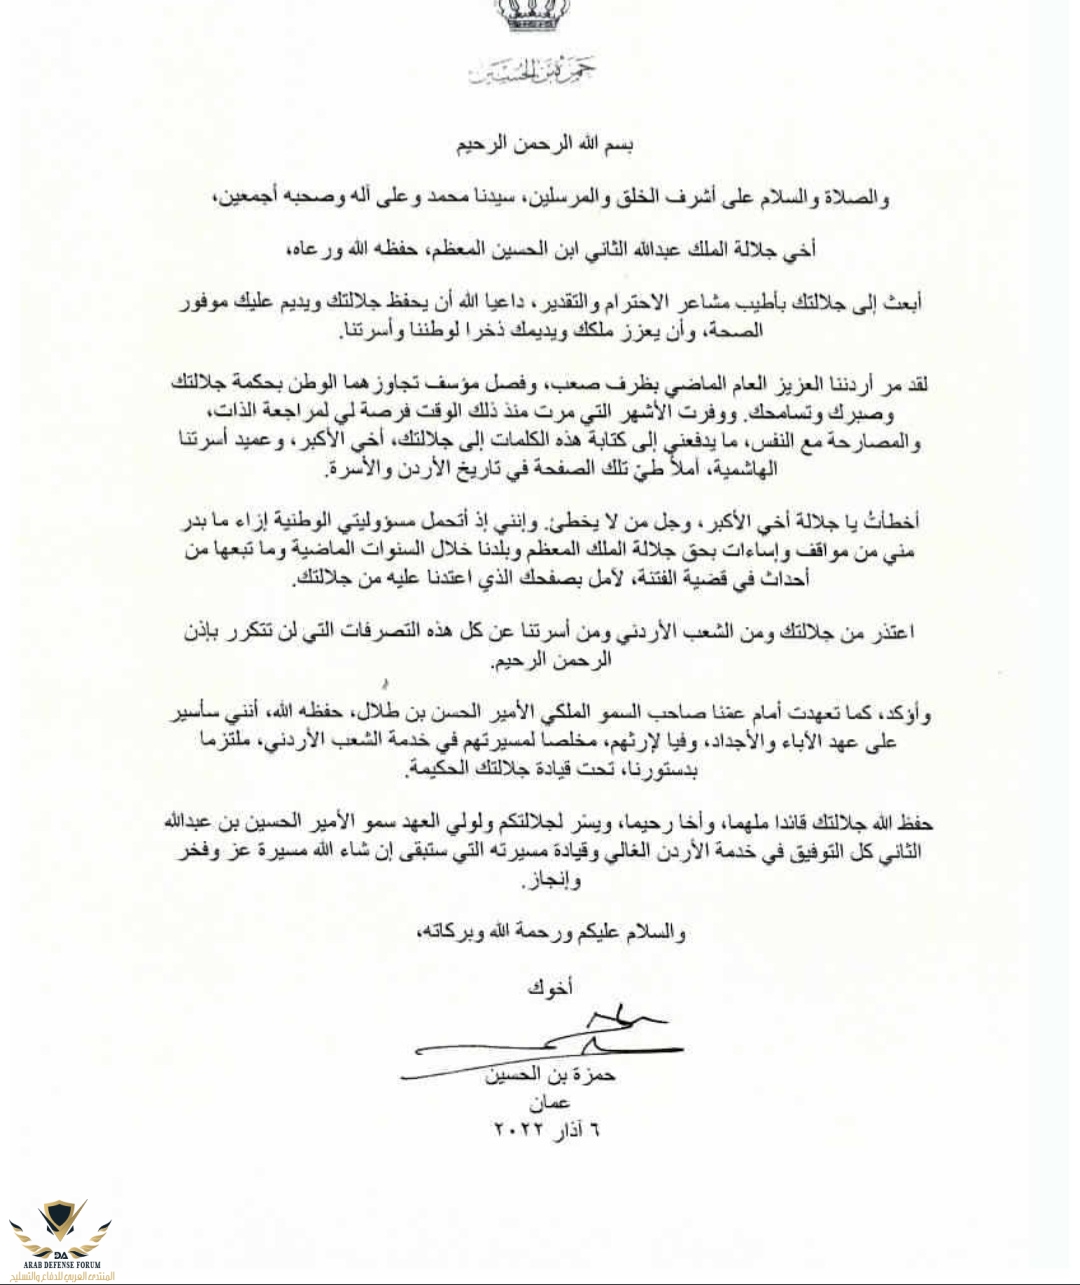 حمزة بن الحسين
بسم الله الرحمن الرحيم
والصلاة والسلام على أشرف الخلق والمرسلين، سيدنا محمد وعلى آله وصحبه أجمعين،
أخي جلالة الملك عبدالله الثاني ابن الحسين المعظم، حفظه الله ورعاه،
أبعث إلى جلالتك بأطيب مشاعر الاحترام والتقدير، داعيا الله أن يحفظ جلالتك ويديم عليك موفور
الصحة، وأن يعزز ملكك ويديمك ذخرا لوطننا وأسرتنا.
لقد مر أردننا العزيز العام الماضي بظرف صعب، وفصل مؤسف تجاوزهما الوطن بحكمة جلالتك
وصبرك وتسامحك. ووفرت الأشهر التي مرت منذ ذلك الوقت فرصة لي لمراجعة الذات،
والمصارحة مع النفس، ما يدفعني إلى كتابة هذه الكلمات إلى جلالتك، أخي الأكبر، وعميد أسرتنا
الهاشمية، آملاً طيّ تلك الصفحة في تاريخ الأردن والأسرة.
أخطأتُ يا جلالة أخي الأكبر، وجل من لا يخطئ. وإنني إذ أتحمل مسؤوليتي الوطنية إزاء ما بدر
مني من مواقف وإساءات بحق جلالة الملك المعظم وبلدنا خلال السنوات الماضية وما تبعها من
أحداث في قضية الفتنة، لآمل بصفحك الذي اعتدنا عليه من جلالتك.
اعتذر من جلالتك ومن الشعب الأردني ومن أسرتنا عن كل هذه التصرفات التي لن تتكرر بإذن
الرحمن الرحيم.
وأؤكد، كما تعهدت أمام عمّنا صاحب السمو الملكي الأمير الحسن بن طلال، حفظه الله، أنني سأسير
على عهد الآباء والأجداد، وفيا لإرثهم، مخلصا لمسيرتهم في خدمة الشعب الأردني، ملتزما
بدستورنا، تحت قيادة جلالتك الحكيمة.
حفظ الله جلالتك قائدا ملهما، وأخا رحيما، ويسّر لجلالتكم ولولي العهد سمو الأمير الحسين بن عبدالله
الثاني كل التوفيق في خدمة الأردن الغالي وقيادة مسيرته التي ستبقى إن شاء الله مسيرة عز وفخر
وإنجاز.
والسلام عليكم ورحمة الله وبركاته،
أخوك
حمزة بن الحسين
عمان
٦ آذار ٢٠٢٢
DA
ARAB DEFENSE FORUM
المنتدى العربي للدفاع والتسليح